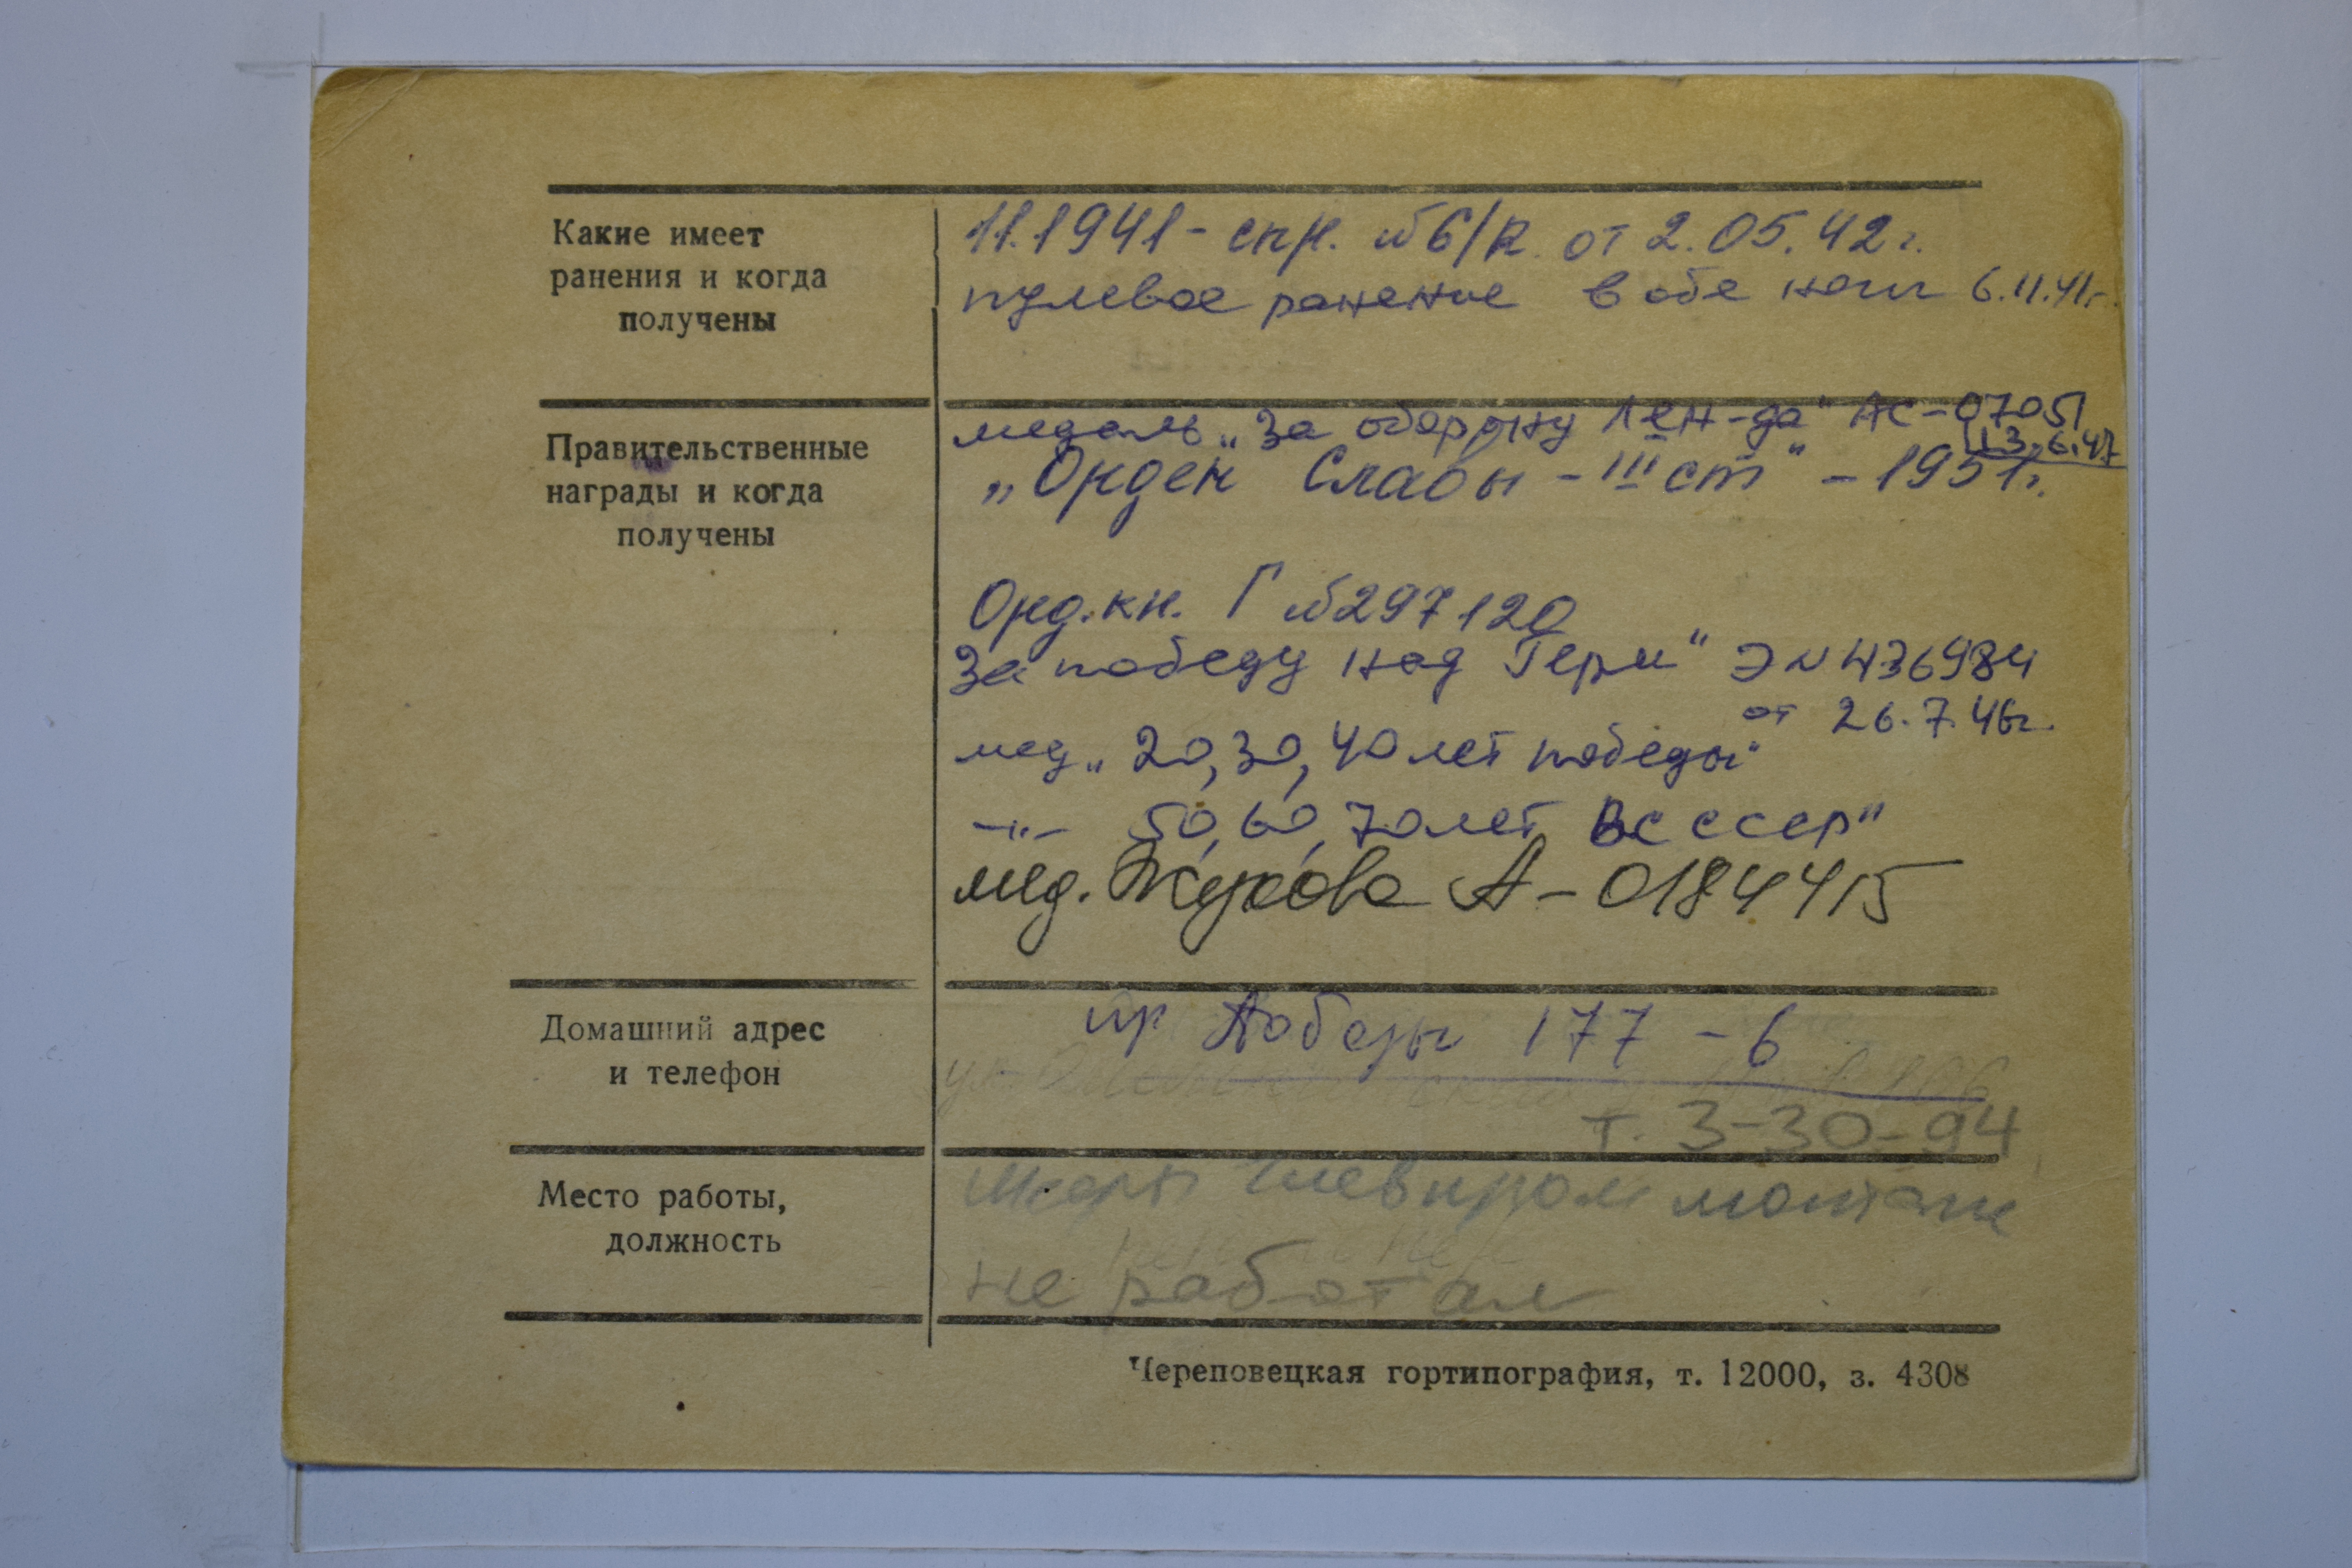 Какие имеет
ранения и когда
получены
11.1941 - спр. №6/R. от 2.05.42г.
пулевое ранение в обе ноги 6.11.41г.
Правительственные
награды и когда
получены
медаль „За оборону Лен-да" АС-07051
13.6.47
„Орден Славы - III ст" - 1951г.
Орд.кн. Г №297120
За победу над Герм" Э N 436984
от 26.7.46г.
мед „20, 30, 40 лет победы"
-"- 50, 60, 70 лет ВС СССР"
мед. Жукова А-0184415
Домашний адрес
и телефон
пр Победы 177 - 6
т. 3-30-94
Место работы,
должность
монтаж
не работал
Череповецкая гортипография, т. 12000, з. 4308